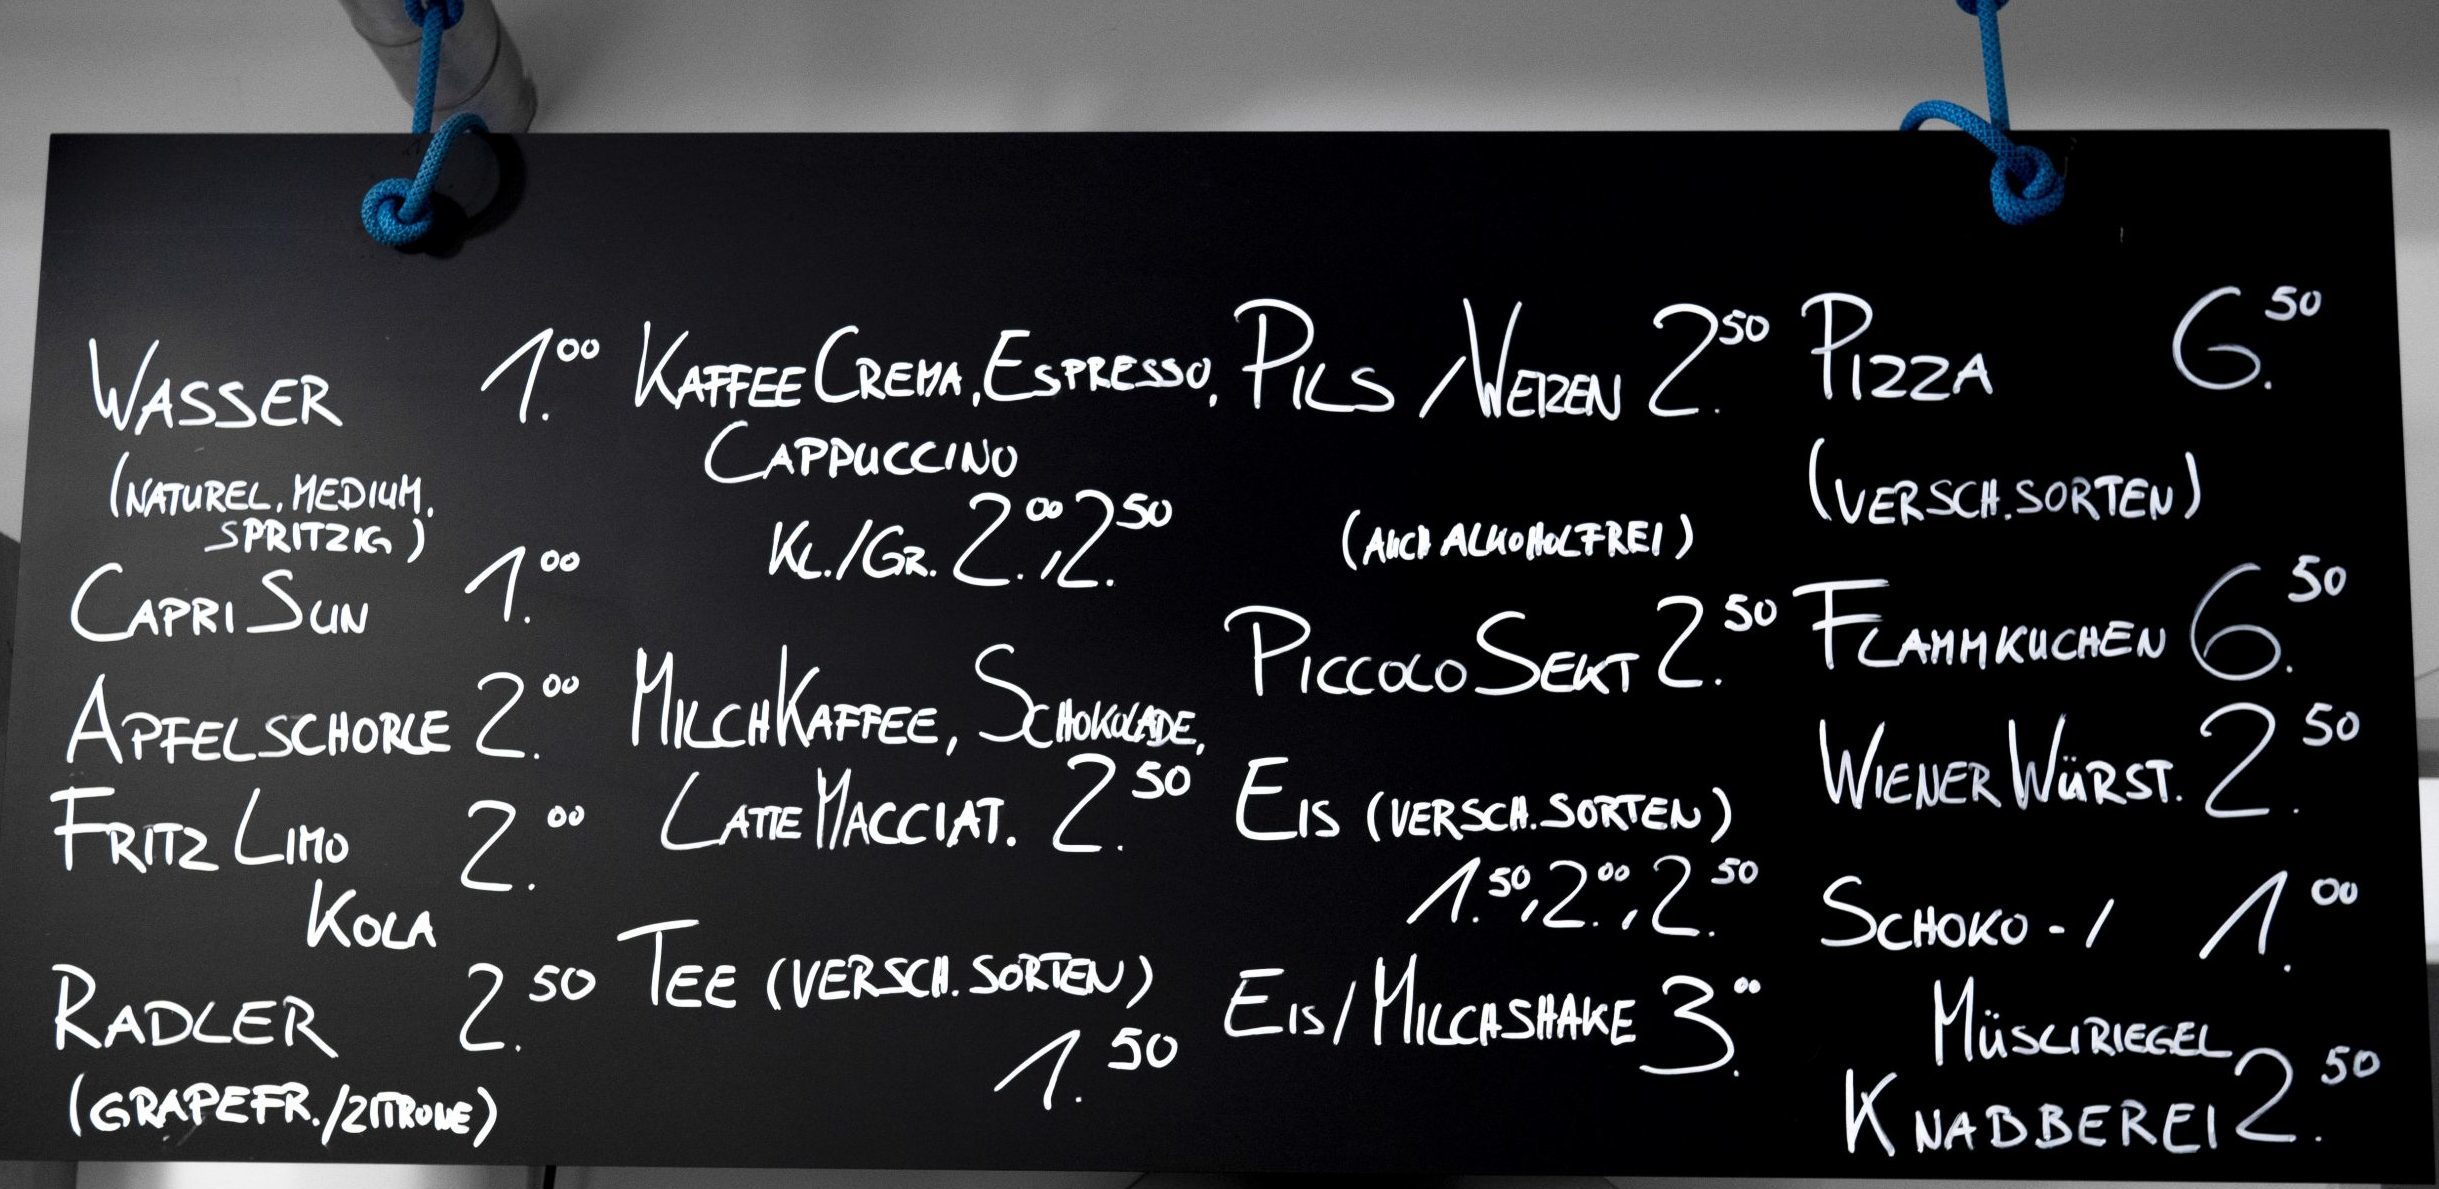 WASSER 1.00
(NATUREL, MEDIUM,
SPRITZIG)
CAPRI SUN 1.00
APFELSCHORLE 2.00
FRITZ LIMO 2.00
KOLA
RADLER 2.50
(GRAPEFR./ZITRONE)
KAFFEE CREMA, ESPRESSO,
CAPPUCCINO
KL./GR. 2.00, 2.50
MILCHKAFFEE, SCHOKOLADE,
LATTE MACCIAT. 2.50
TEE (VERSCH. SORTEN)
1.50
PILS / WEIZEN 2.50
(AUCH ALKOHOLFREI)
PICCOLO SEKT 2.50
EIS (VERSCH. SORTEN)
1.50, 2.00, 2.50
EIS / MILCHSHAKE 3.00
PIZZA 6.50
(VERSCH. SORTEN)
FLAMMKUCHEN 6.50
WIENER WÜRST. 2.50
SCHOKO-/ 1.00
MÜSLIRIEGEL
KNABBEREI 2.50